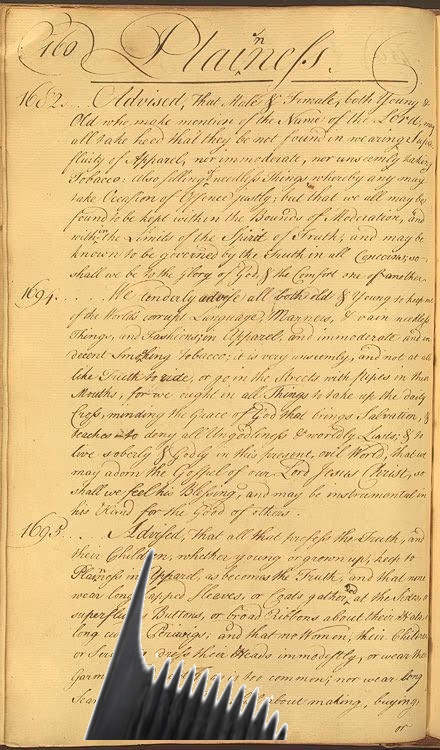 160
Plainness.
1682. . . Advised, That Male & Female, both Young &
Old who make mention of the Name of the Lord, may
all take heed that they be not found in wearing Sup
fluity of Apparel, nor immoderate, nor unseemly taking
Tobacco: also selling needless Things whereby any may
take Occasion of Offence justly; but that we all may be
found to be kept within the Bounds of Moderation, and
within the Limits of the Spirit of Truth, and may be
known to be governed by the Truth in all Concerns, so
shall we be to the Glory of God, & the Comfort one of another.
1694. . . . . We tenderly advise all both old & Young to keep
of the World's corrupt Language, Manners, & vain needless
Things, and Fashions, in Apparel, and immoderate and in
decent Smoking Tobacco; it is very unseemly, and not at all
like Truth to ride, or go in the Streets with pipes in their
Mouths, for we ought in all Things to take up the daily
Cross, minding the Grace of God that brings Salvation, &
teaches to deny all Ungodliness & worldly Lusts, & to
live soberly & Godly in this present, evil World, that we
may adorn the Gospel of our Lord Jesus Christ, so
shall we feel his Blessing, and may be instrumental in
his Hand for the Good of others.
1695. . . Advised, that all that profess the Truth, and
their Children, whether young or grown up, keep to
Plainness in Apparel, as becomes the Truth, and that none
wear long lapped Sleeves, or Coats gather'd at the Sides, or
superfluous Buttons, or broad Ribbons about their Hats, or
long curled Periwigs, and that no Women, their Children
or dress their Heads immodestly, or wear the
Garm is too common; nor wear long
about making, buying,
or